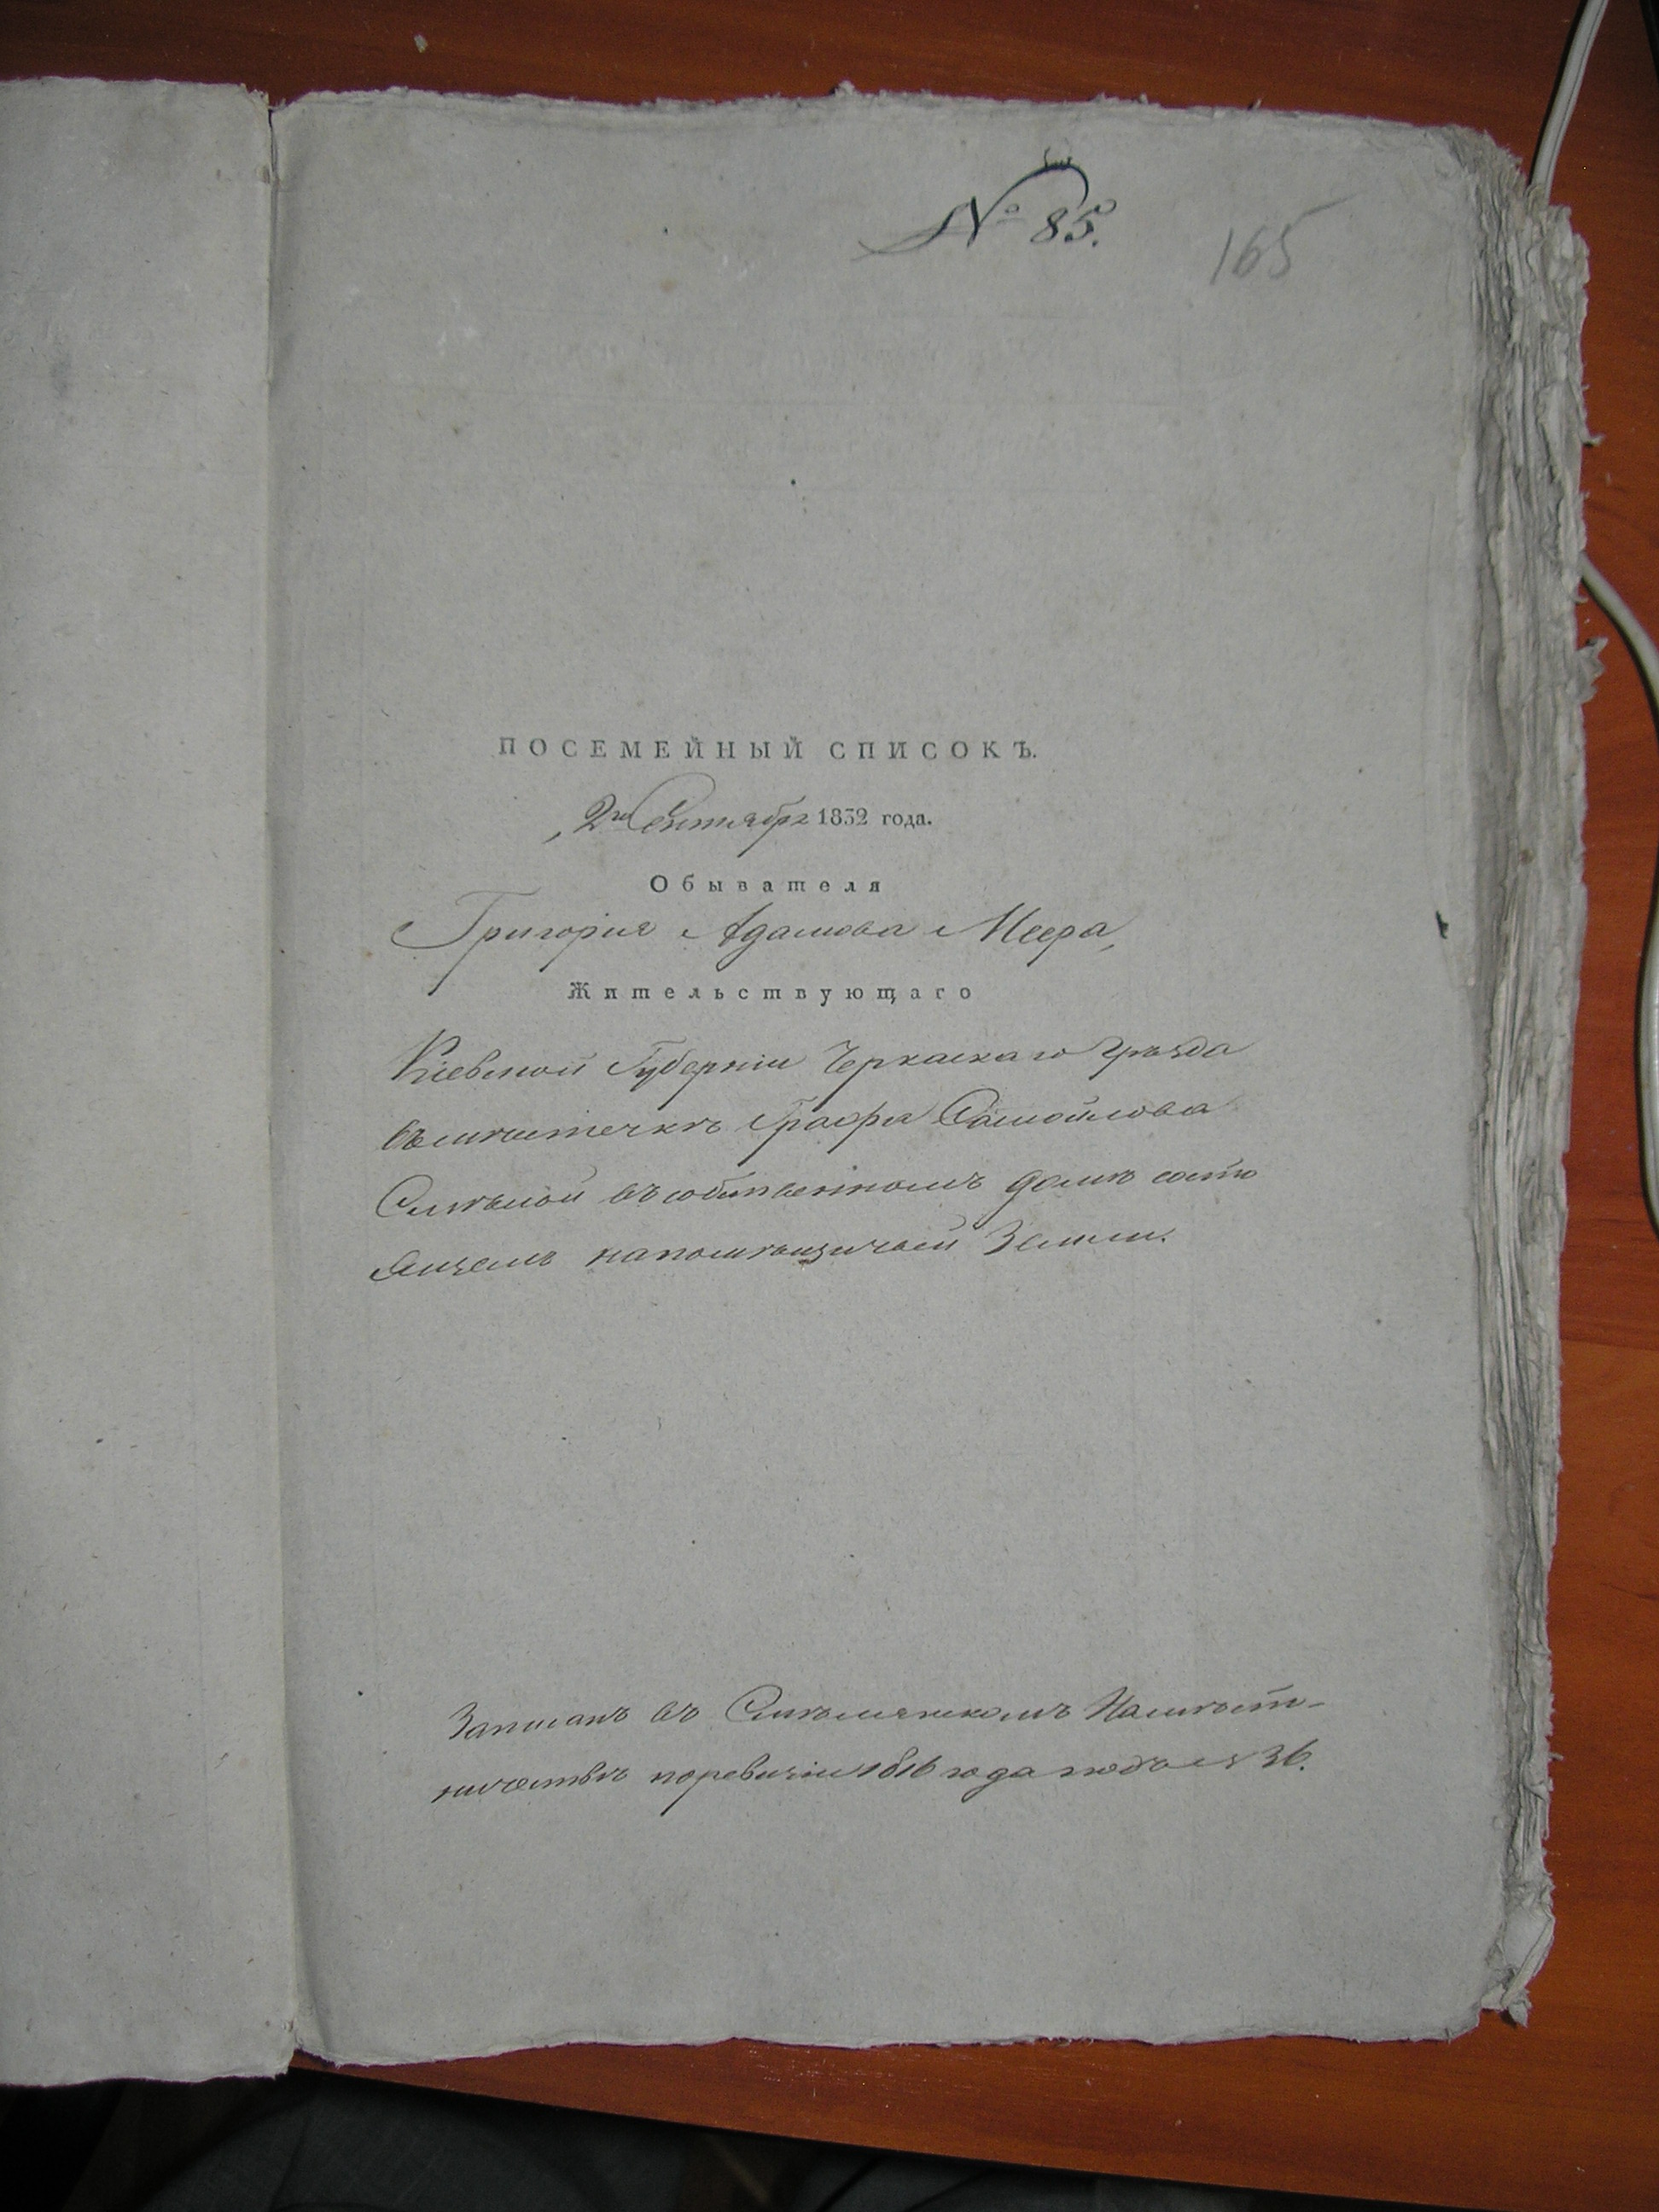 № 85.
165
ПОСЕМЕЙНЫЙ СПИСОКЪ.
2го Сентября 1832 года.
Обывателя
Григорія Адамова Меера,
Жительствующаго
Кіевской Губерніи Черкаскаго Уѣзда
въ мѣстечкѣ Графа Самойлова
Смѣлой въ собственномъ домѣ состо
ящемъ на помѣщичьей Земли.
Записанъ въ Смѣлянскомъ Намѣст-
ничествѣ по ревизіи 1816 года подъ № 36.